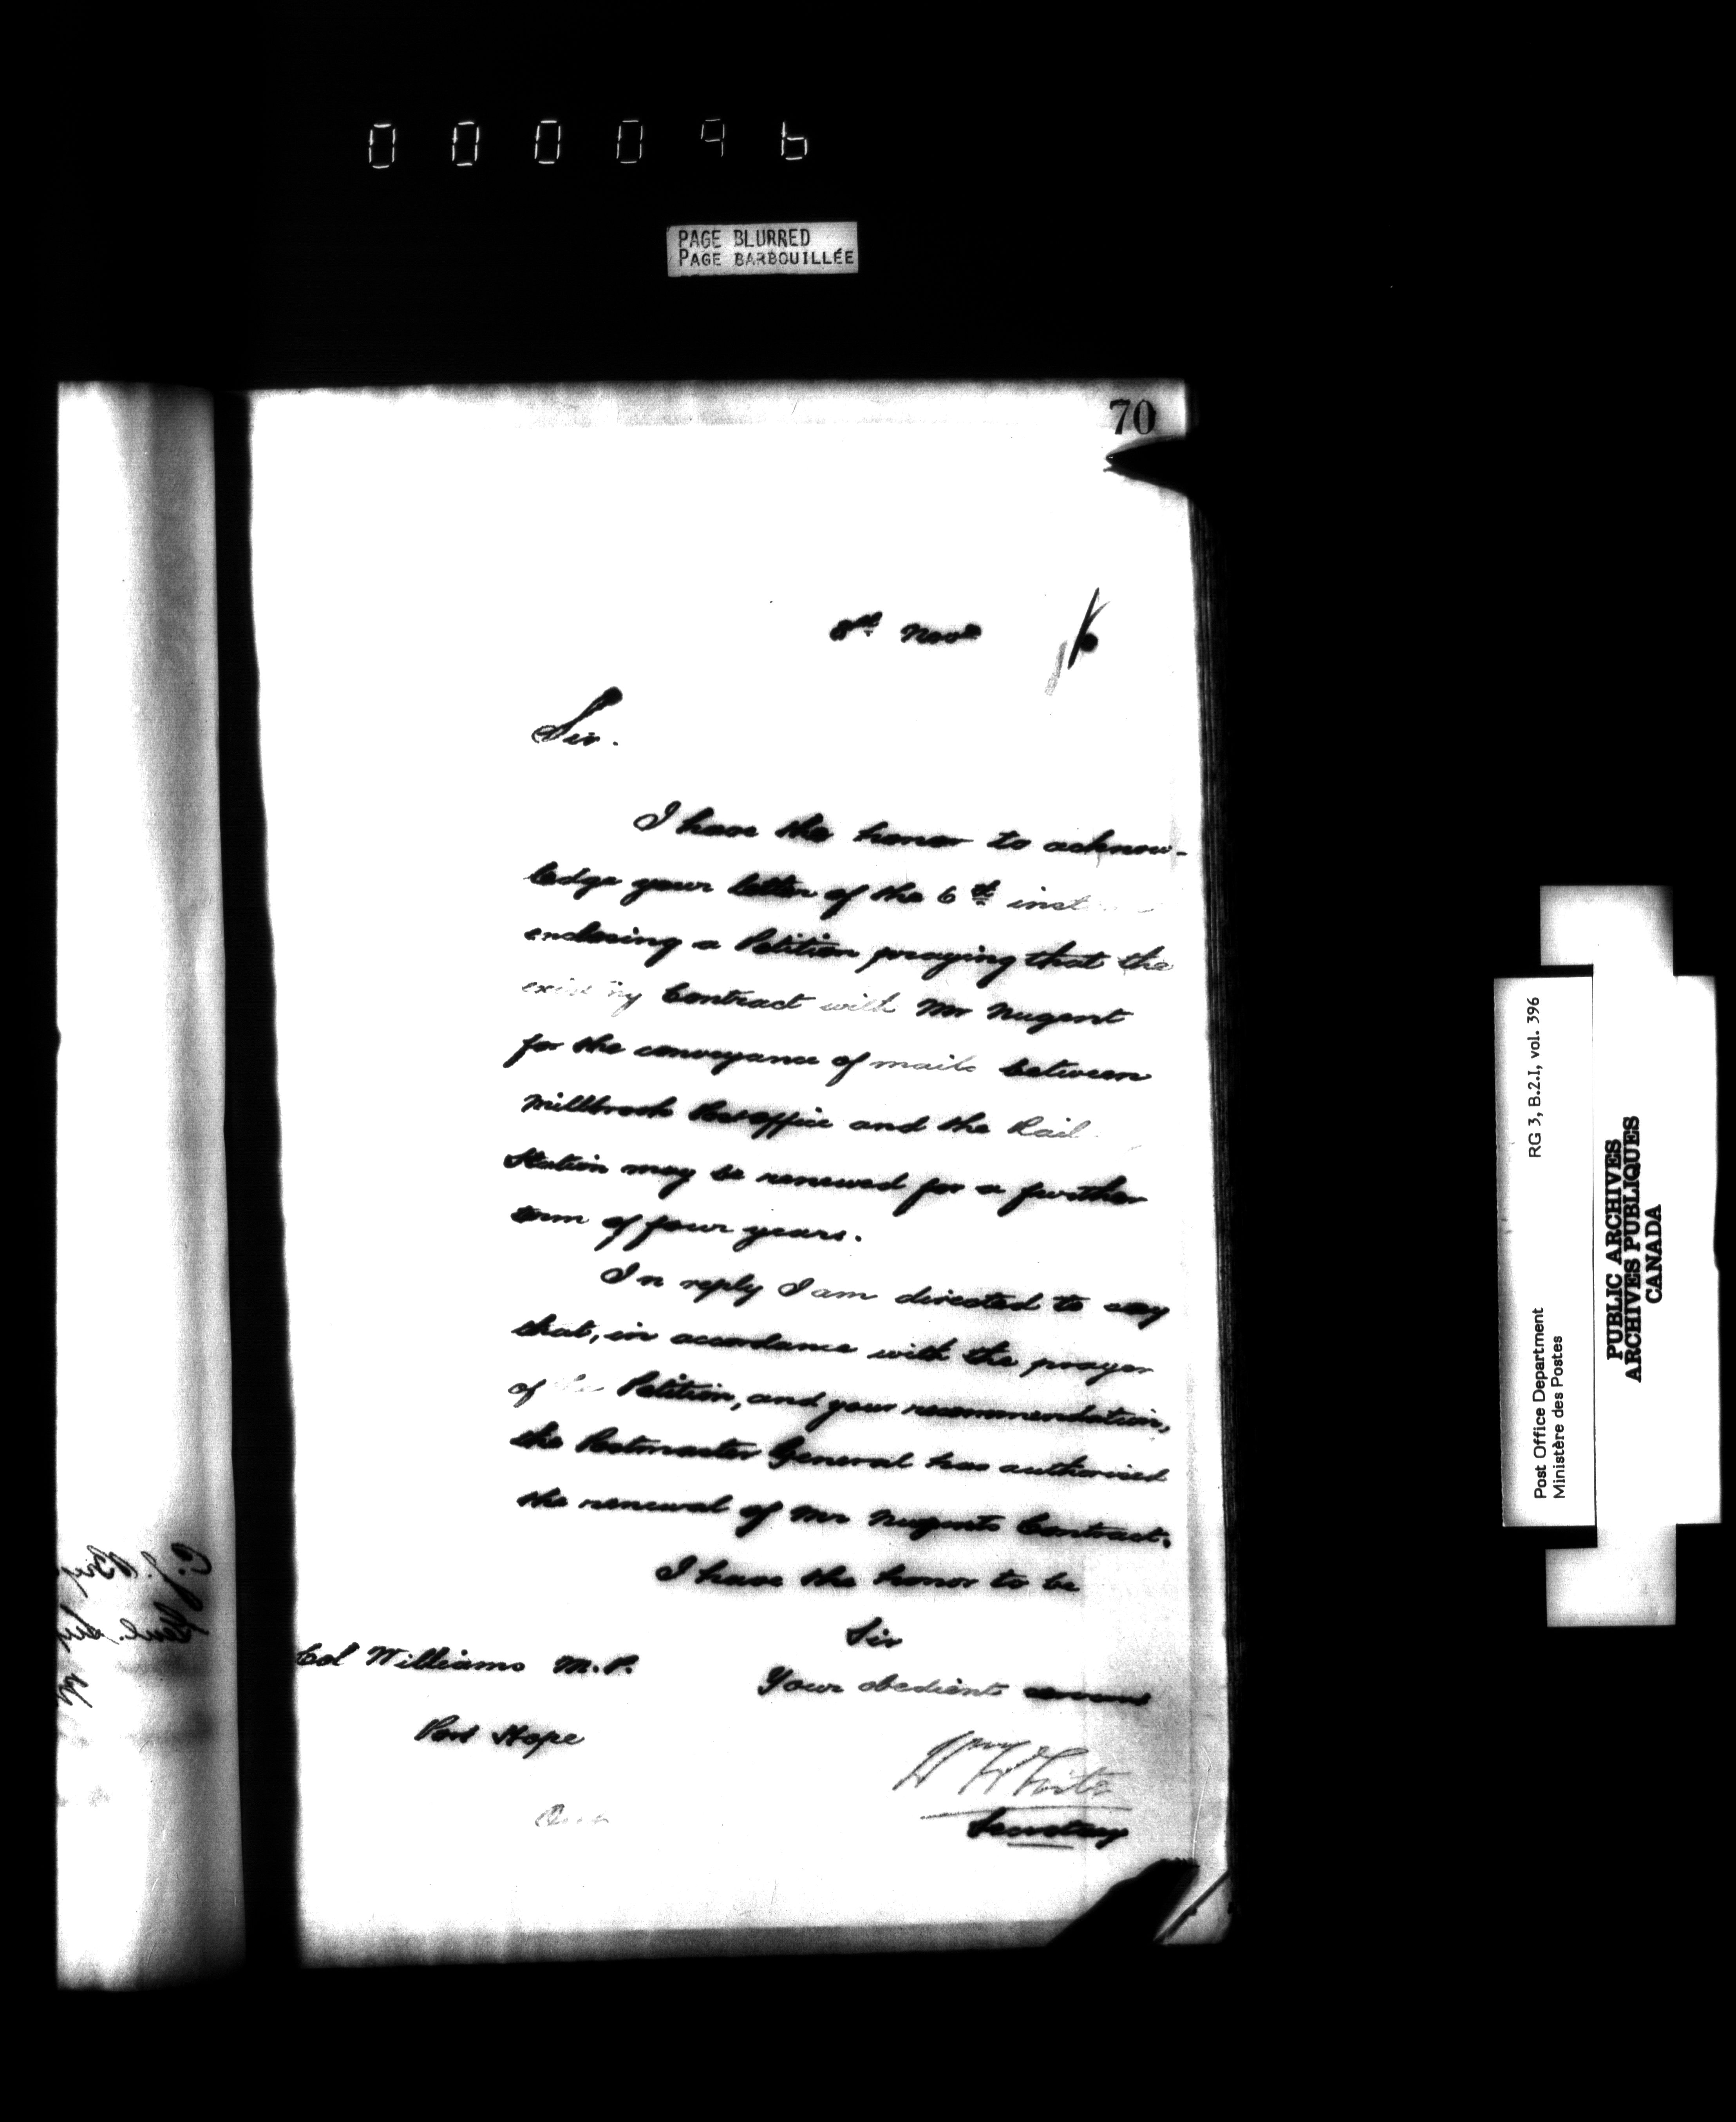 000096
PAGE BLURRED
PAGE BARBOUILLÉE
70
8th Novr
Sir.
I have the honor to acknow-
ledge your letter of the 6th inst
enclosing a Petition praying that the
existing Contract with Mr Nugent
for the conveyance of mails between
Millbrook Post office and the Rail
Station may be renewed for a further
term of four years.
In reply I am directed to say
that, in accordance with the prayer
of the Petition, and your recommendation,
the Postmaster General has authorised
the renewal of Mr Nugents Contract.
I have the honor to be
Sir
Your obedient servant
Wm White
Secretary
Col Williams M.P.
Port Hope
Post Office Department RG 3, B.2.I, vol. 396
Ministère des Postes
PUBLIC ARCHIVES
ARCHIVES PUBLIQUES
CANADA